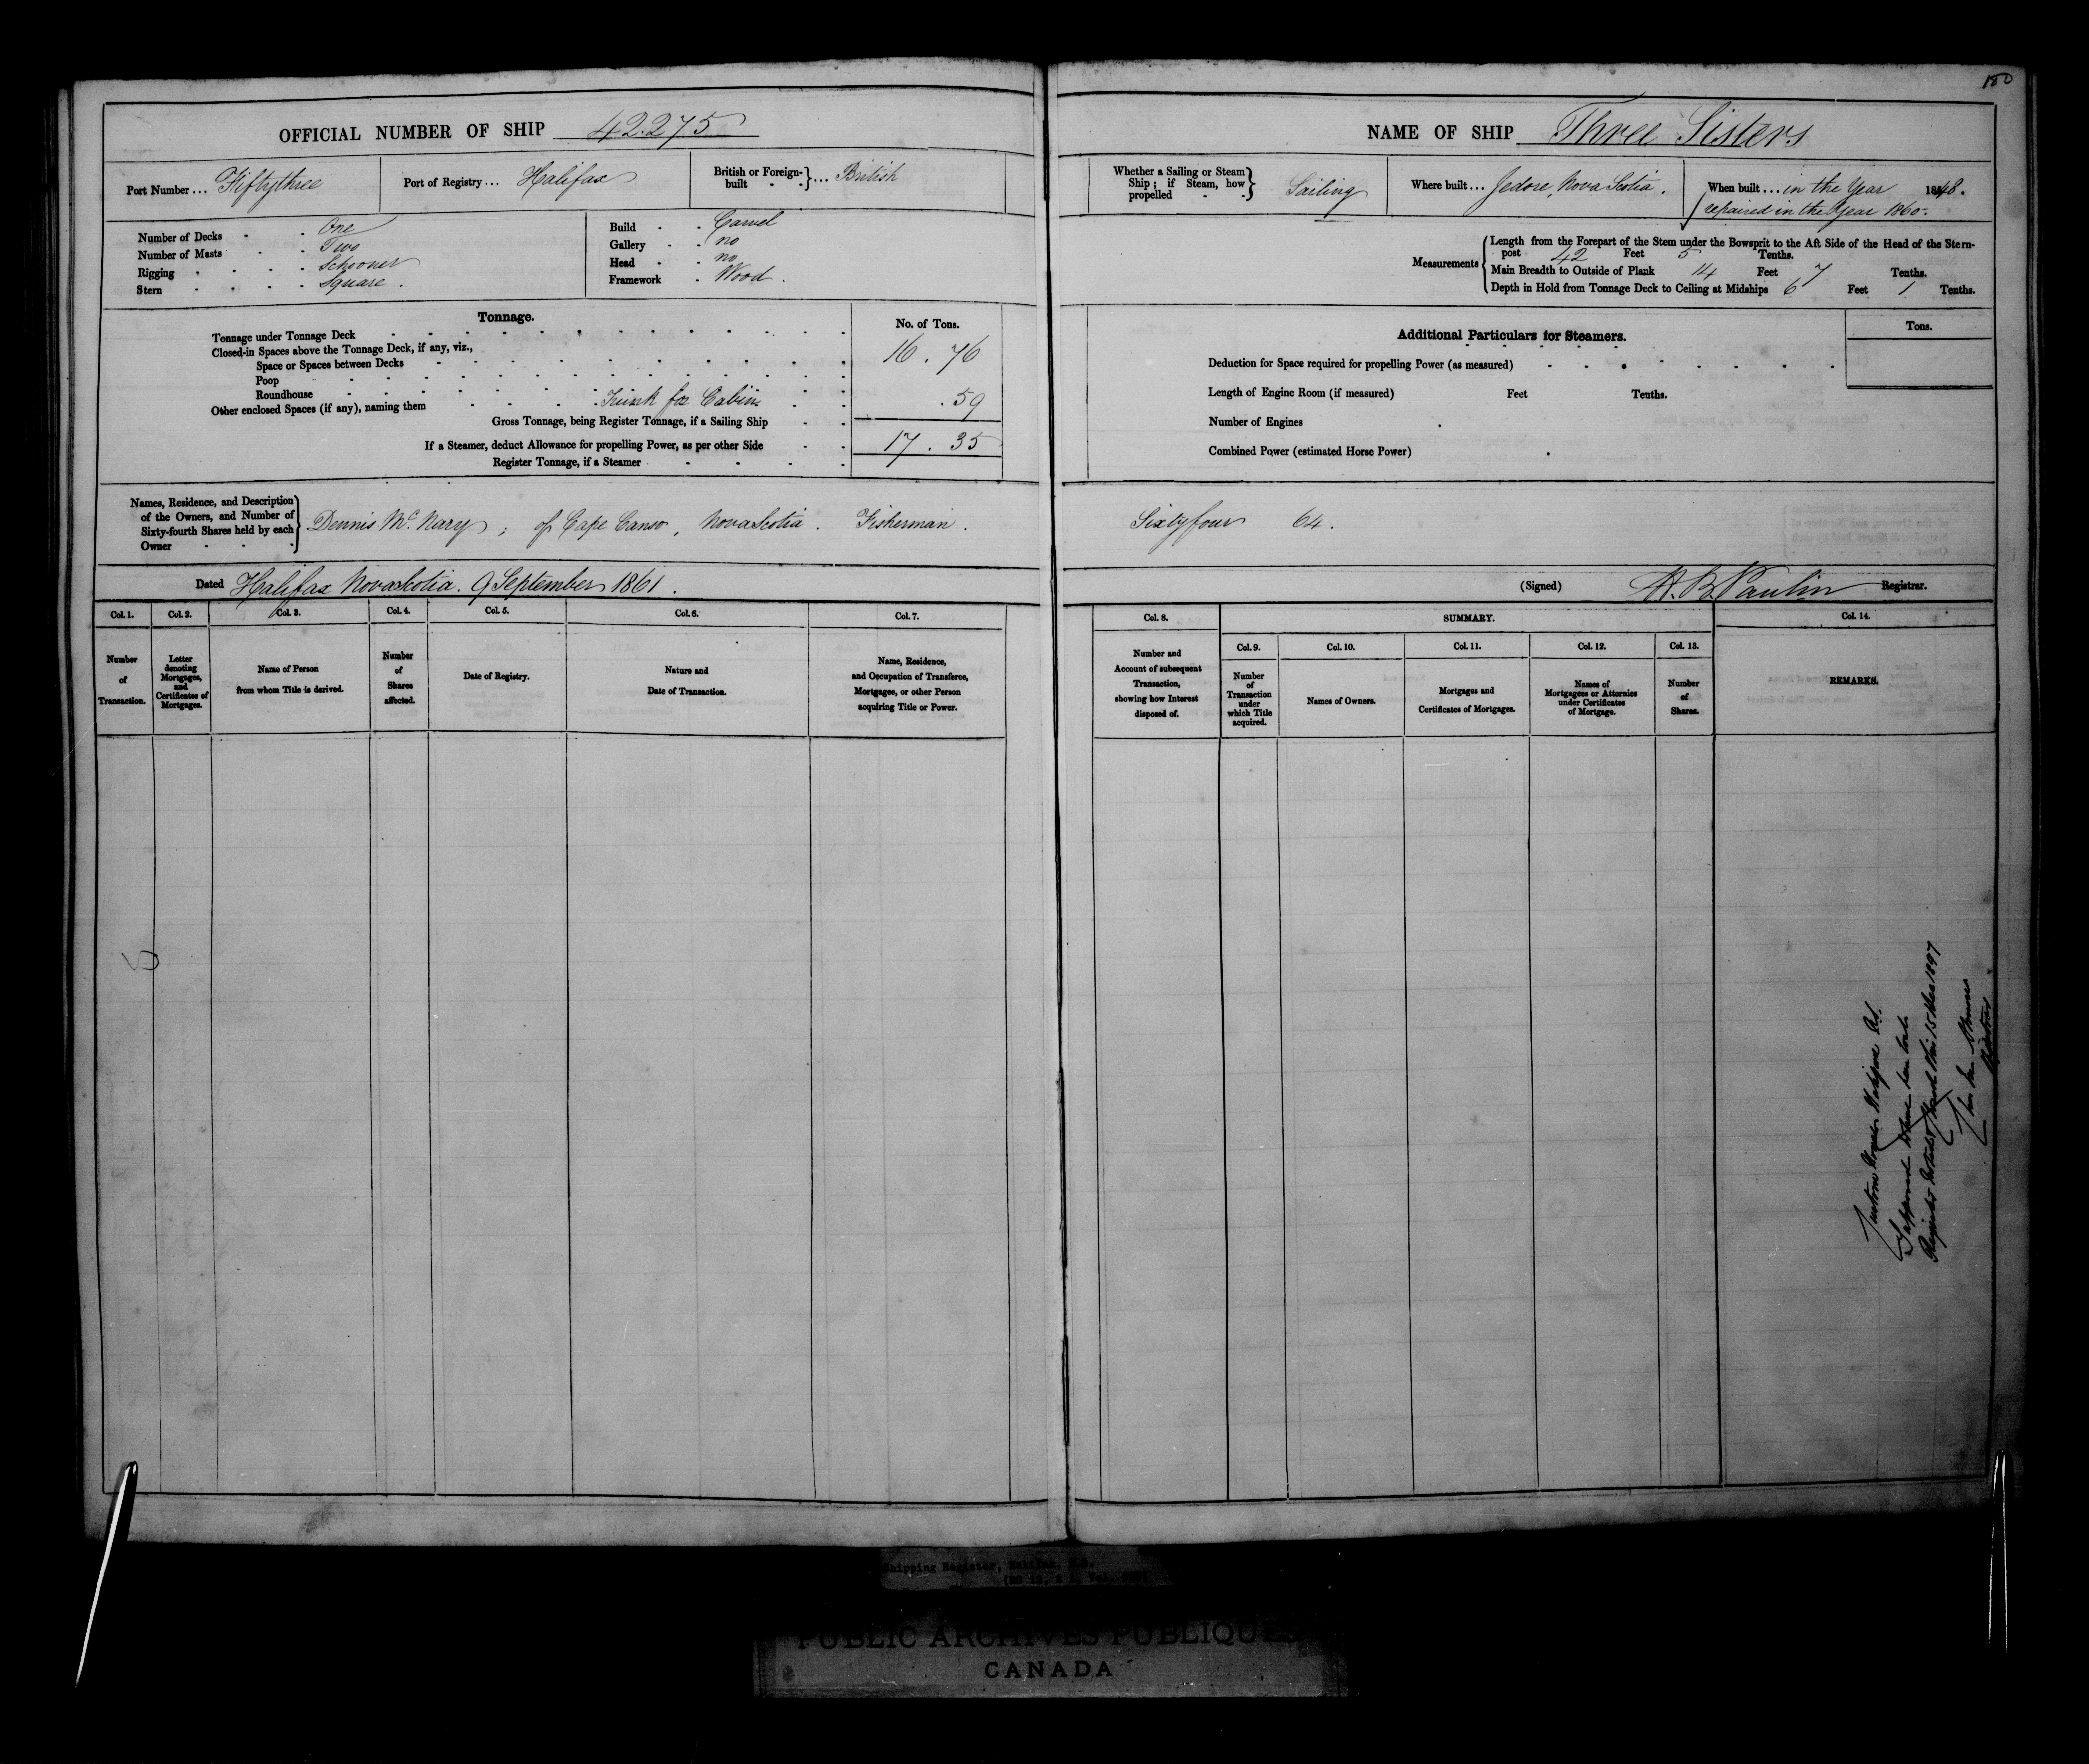 180
OFFICIAL NUMBER OF SHIP 42.275
NAME OF SHIP Three Sisters
Port Number ... Fiftythree
Port of Registry ... Halifax
British or Foreign-built } ... British
Whether a Sailing or Steam Ship; if Steam, how propelled } Sailing
Where built ... Jedore, Nova Scotia.
When built ... in the Year 1848.
repaired in the Year 1860.
Number of Decks - - One
Number of Masts - - Two
Rigging - - - - Schooner
Stern - - - - Square.
Build - - Carvel
Gallery - - no
Head - - no
Framework - Wood.
Measurements
Length from the Forepart of the Stem under the Bowsprit to the Aft Side of the Head of the Stern-
post 42 Feet 5 Tenths.
Main Breadth to Outside of Plank 14 Feet 7 Tenths.
Depth in Hold from Tonnage Deck to Ceiling at Midships 6 Feet 1 Tenths.
Tonnage.
No. of Tons.
Tonnage under Tonnage Deck 16.76
Closed-in Spaces above the Tonnage Deck, if any, viz.,
Space or Spaces between Decks
Poop
Roundhouse
Other enclosed Spaces (if any), naming them Trunk for Cabin .59
Gross Tonnage, being Register Tonnage, if a Sailing Ship 17.35
If a Steamer, deduct Allowance for propelling Power, as per other Side
Register Tonnage, if a Steamer
Additional Particulars for Steamers.
Tons.
Deduction for Space required for propelling Power (as measured)
Length of Engine Room (if measured) Feet Tenths.
Number of Engines
Combined Power (estimated Horse Power)
Names, Residence, and Description
of the Owners, and Number of
Sixty-fourth Shares held by each
Owner
Dennis Mc Nary; of Cape Canso, Nova Scotia. Fisherman. Sixtyfour 64.
Dated Halifax Nova Scotia. 9 September 1861.
(Signed) H. B. Paulin Registrar.
Col. 1.
Number
of
Transaction.
Col. 2.
Letter
denoting
Mortgages,
and
Certificates of
Mortgages.
Col. 3.
Name of Person
from whom Title is derived.
Col. 4.
Number
of
Shares
affected.
Col. 5.
Date of Registry.
Col. 6.
Nature and
Date of Transaction.
Col. 7.
Name, Residence,
and Occupation of Transferee,
Mortgagee, or other Person
acquiring Title or Power.
Col. 8.
Number and
Account of subsequent
Transaction,
showing how Interest
disposed of.
SUMMARY.
Col. 9.
Number
of
Transaction
under
which Title
acquired.
Col. 10.
Names of Owners.
Col. 11.
Mortgages and
Certificates of Mortgages.
Col. 12.
Names of
Mortgagees or Attornies
under Certificates
of Mortgage.
Col. 13.
Number
of
Shares.
Col. 14.
REMARKS.
Custom House Halifax N.S.
Supposed to have been lost.
Register closed this 15 1897
Registrar
Shipping Register, Halifax, N.S.
PUBLIC ARCHIVES PUBLIQUES
CANADA